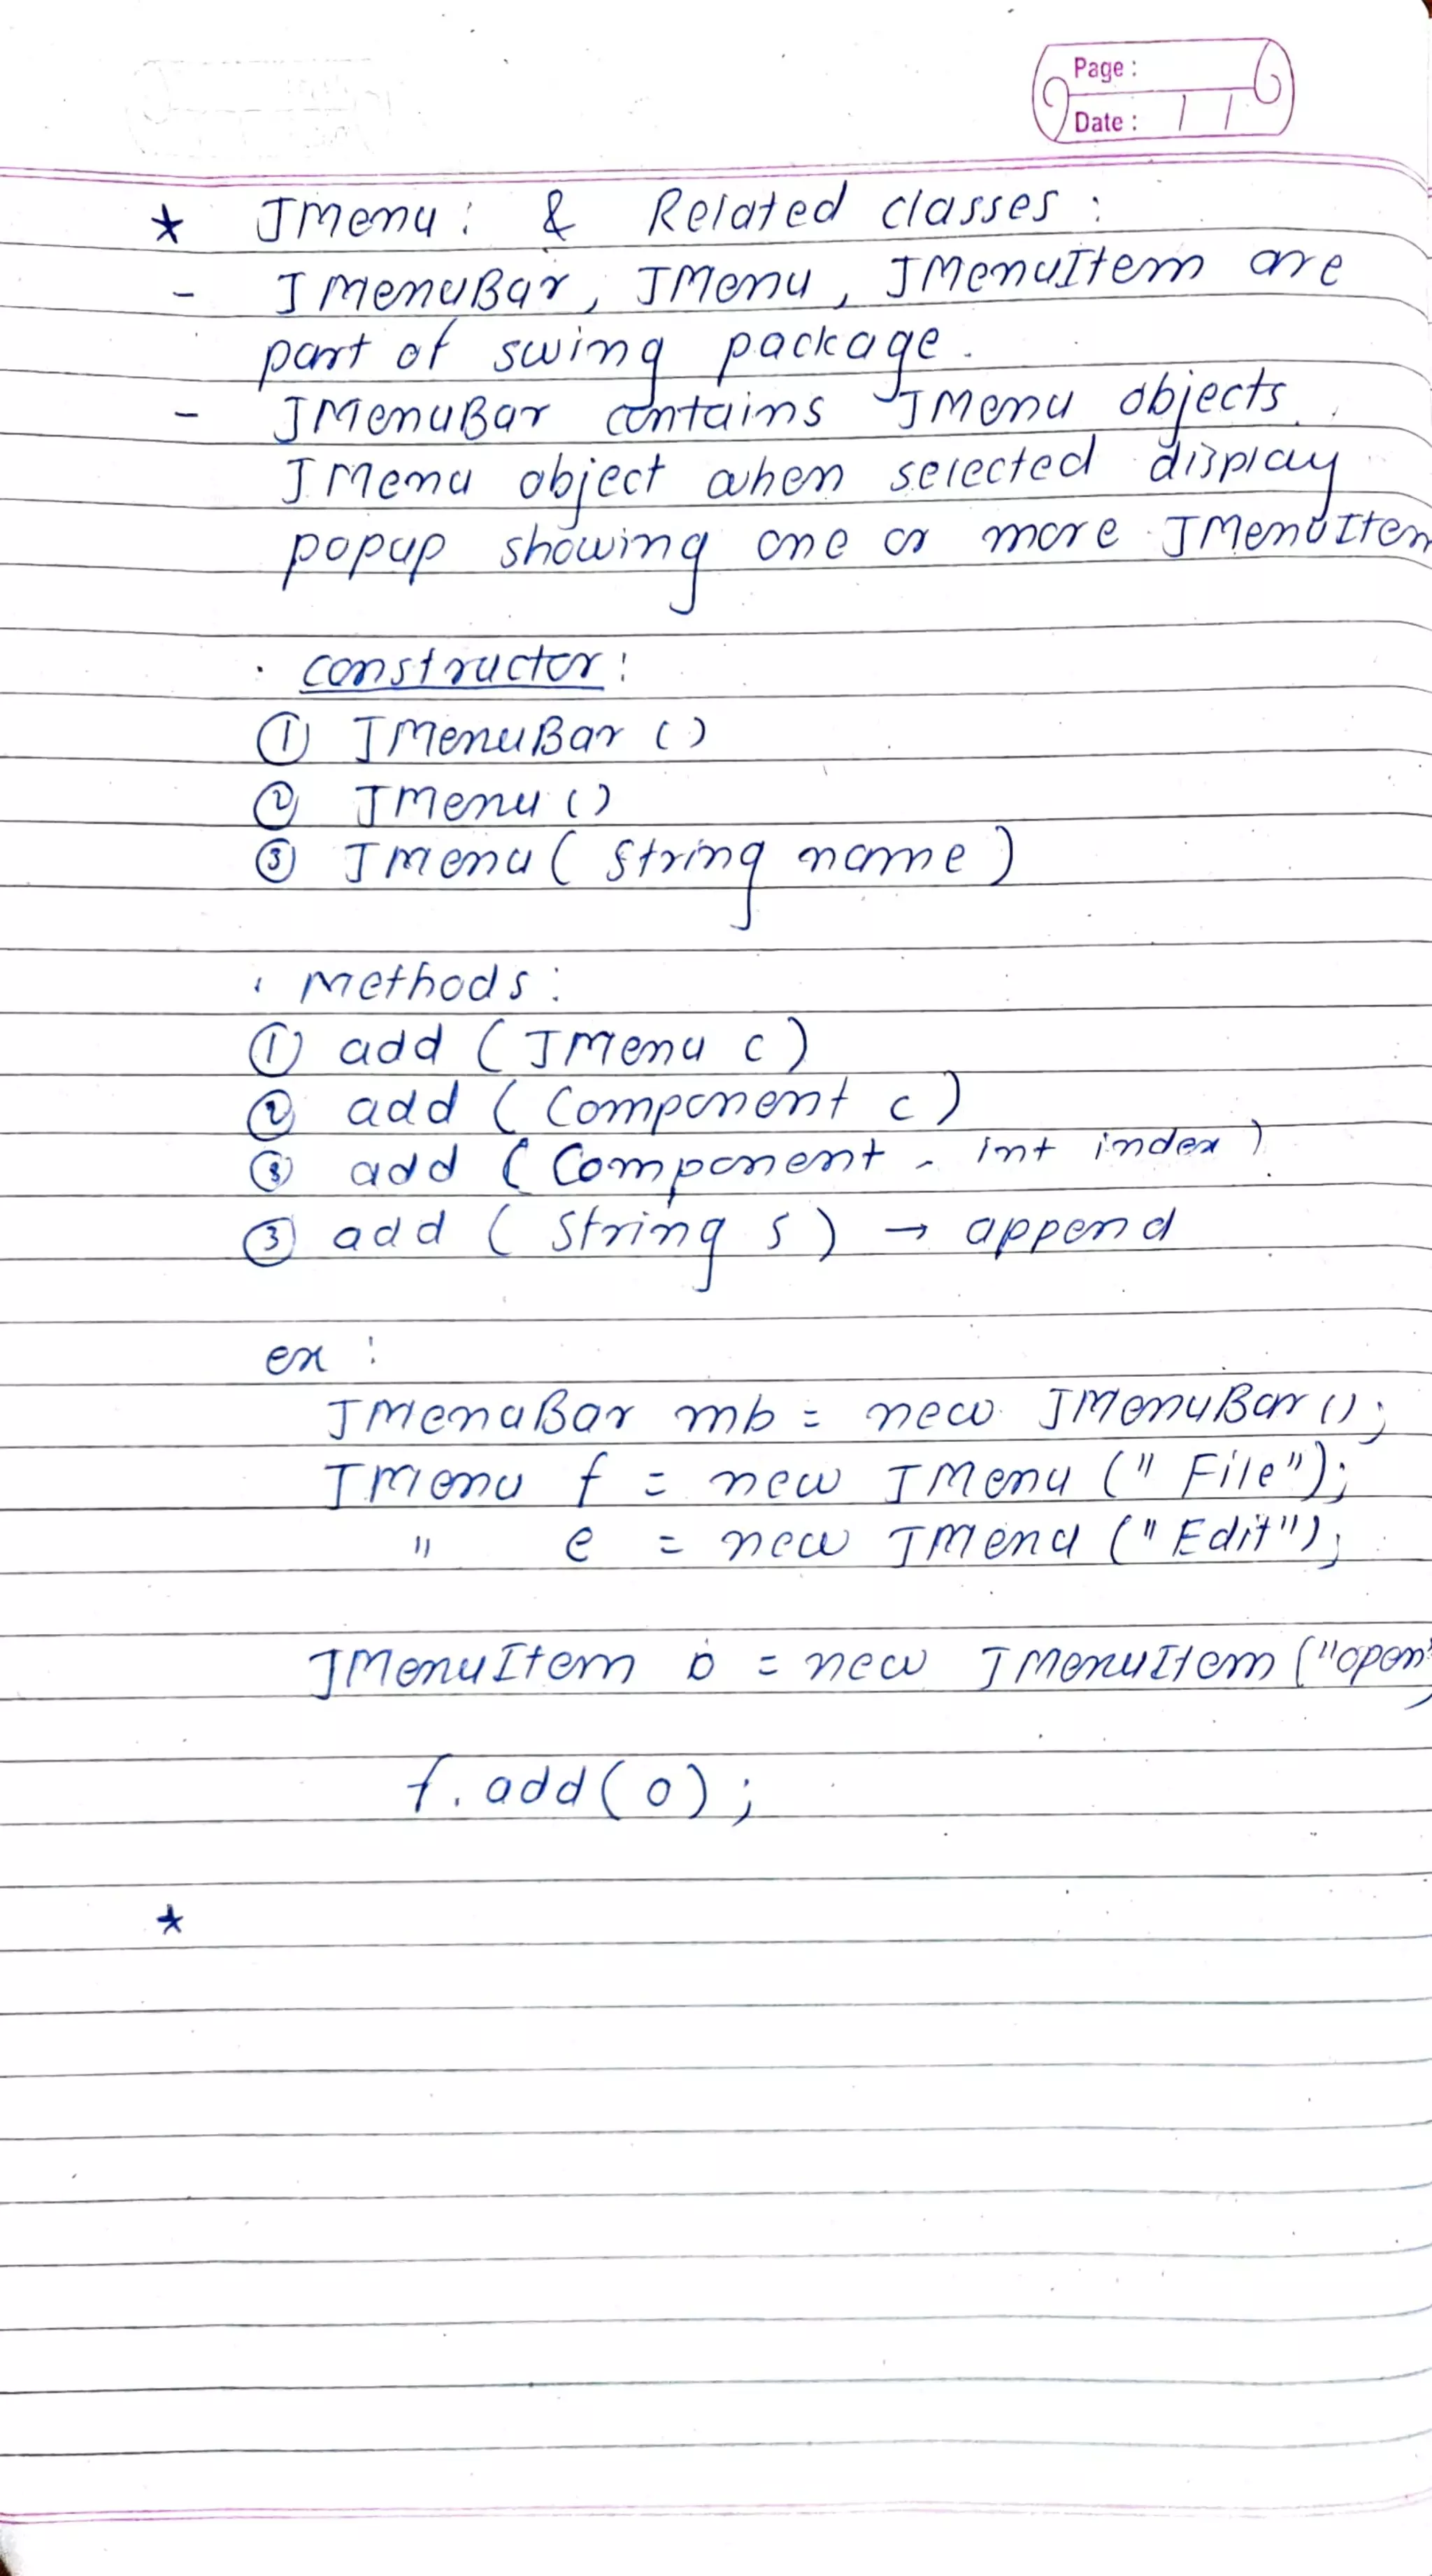 Page :
Date : / /
★ JMenu: & Related classes :
- JMenuBar, JMenu, JMenuItem are
part of swing package.
- JMenuBar contains JMenu objects.
JMenu object when selected display
popup showing one or more JMenuItem
. constructor:
① JMenuBar ()
② JMenu ()
③ JMenu ( String name )
. Methods :
① add ( JMenu c )
② add ( Component c )
③ add ( Component , int index )
③ add ( String s ) → append
ex :
JMenuBar mb = new JMenuBar ();
JMenu f = new JMenu (" File");
" e = new JMenu ("Edit");
JMenuItem o = new JMenuItem ("open"
f. add ( o ) ;
★